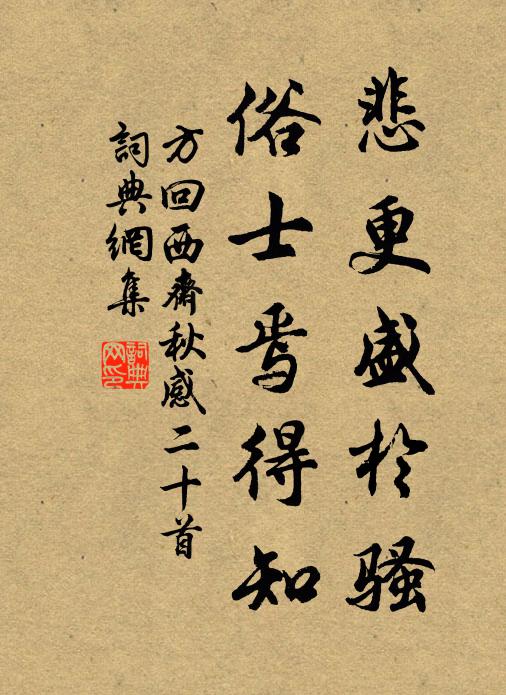 悲更盛於騷
俗士焉得知
方回西齋秋感二十首
詞典網集
詞典
网印